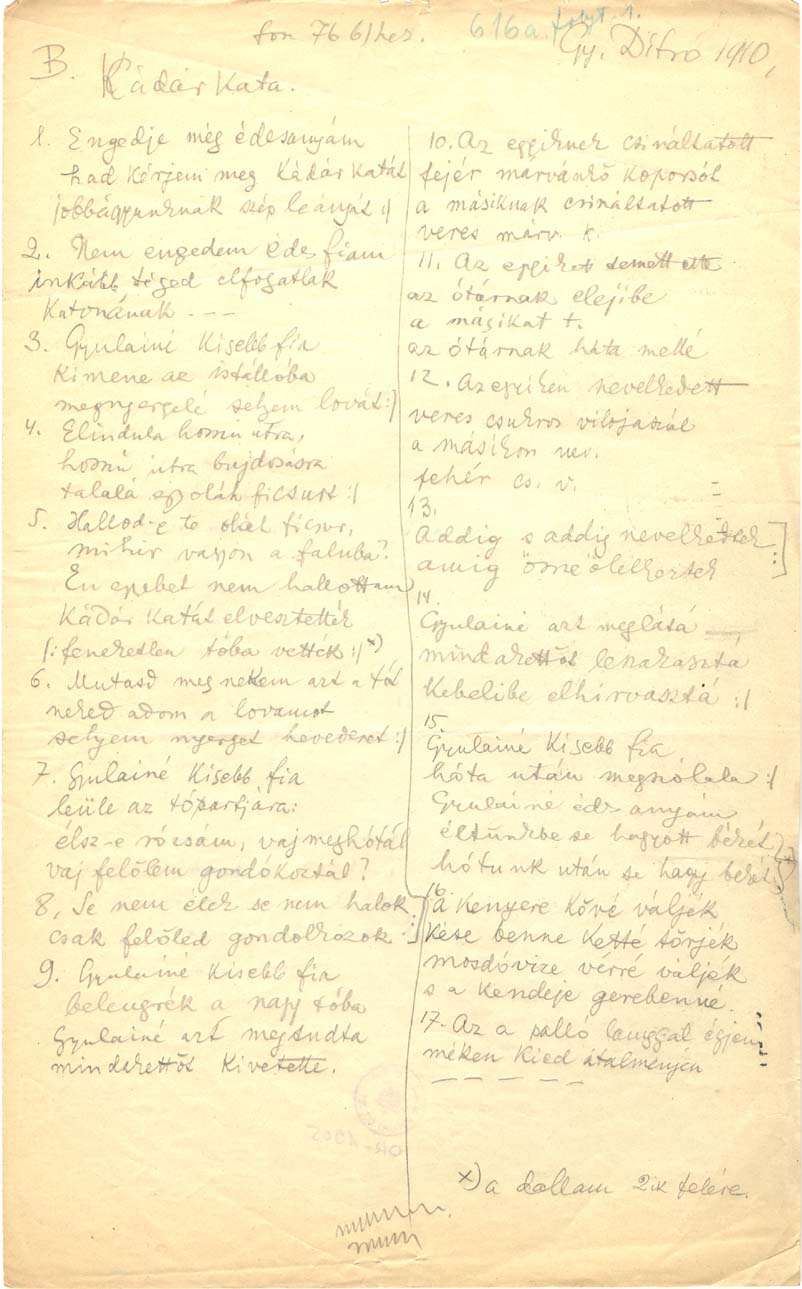 fon 76 6/hez.
616a folyt. 1.
Gy. Ditró 1910,
B. Kádár Kata.
1. Engedje még édesanyám
had kérjem meg Kádár Katát
jobbágyunknak szép leányát :/
2. Nem engedem édes fiam
inkább téged elfogatlak
Katonának - - -
3. Gyulainé Kisebb fia
Kimene az istállóba
megnyergelé selyem lovát :/
4. Elindula hosszú útra,
hosszú útra bujdosásra
talalá egy oláh ficsurt :/
5. Hallod-e te oláh ficsur,
mi hir vagyon a faluba?
Én egyebet nem hallottam
Kádár Katát elvesztették
/: feneketlen tóba vették :/ x)
6. Mutasd meg nekem azt a tót
neked adom a lovamot
selyem nyerget hevederet :/
7. Gyulainé Kisebb fia
leüle az tópartjára:
élsz-e rózsám, vaj meghótál
vaj felőlem gondókoztál?
8. Se nem élek se nem halok
csak felőled gondolkozok :/
9. Gyulainé Kisebb fia
beleugrék a nagy tóba
Gyulainé azt megtudta
mindakettőt Kivetette.
10. Az egyiknek csináltatott
fejér márvánkő koporsót
a másiknak csináltatott
veres márv. k.
11. Az egyiket temettette
az ótárnak elejibe
a másikat t.
az ótárnak háta mellé
12. Az egyiken nevelkedett
veres csukros viloja szál
a másikon nev.
fehér cs. v.
13.
Addig s addig nevelkedtek
amig össze ölelkeztek :/
14.
Gyulainé azt meglátá
mindakettőt leszakasztá
Kebelibe elhirvasztá :/
15.
Gyulainé Kisebb fia
hóta után megszólala :/
Gyulainé édes anyám
éltünkbe se hagyott békét
hótunk után se hagy békét
16. A Kenyere Kővé váljék
Kése benne Ketté törjék
mosdóvize vérré váljék
s a Kendeje gerebenné.
17. Az a palló langgal égjen
méken Kied átalmenyen
x) a dallam 2ik felére.